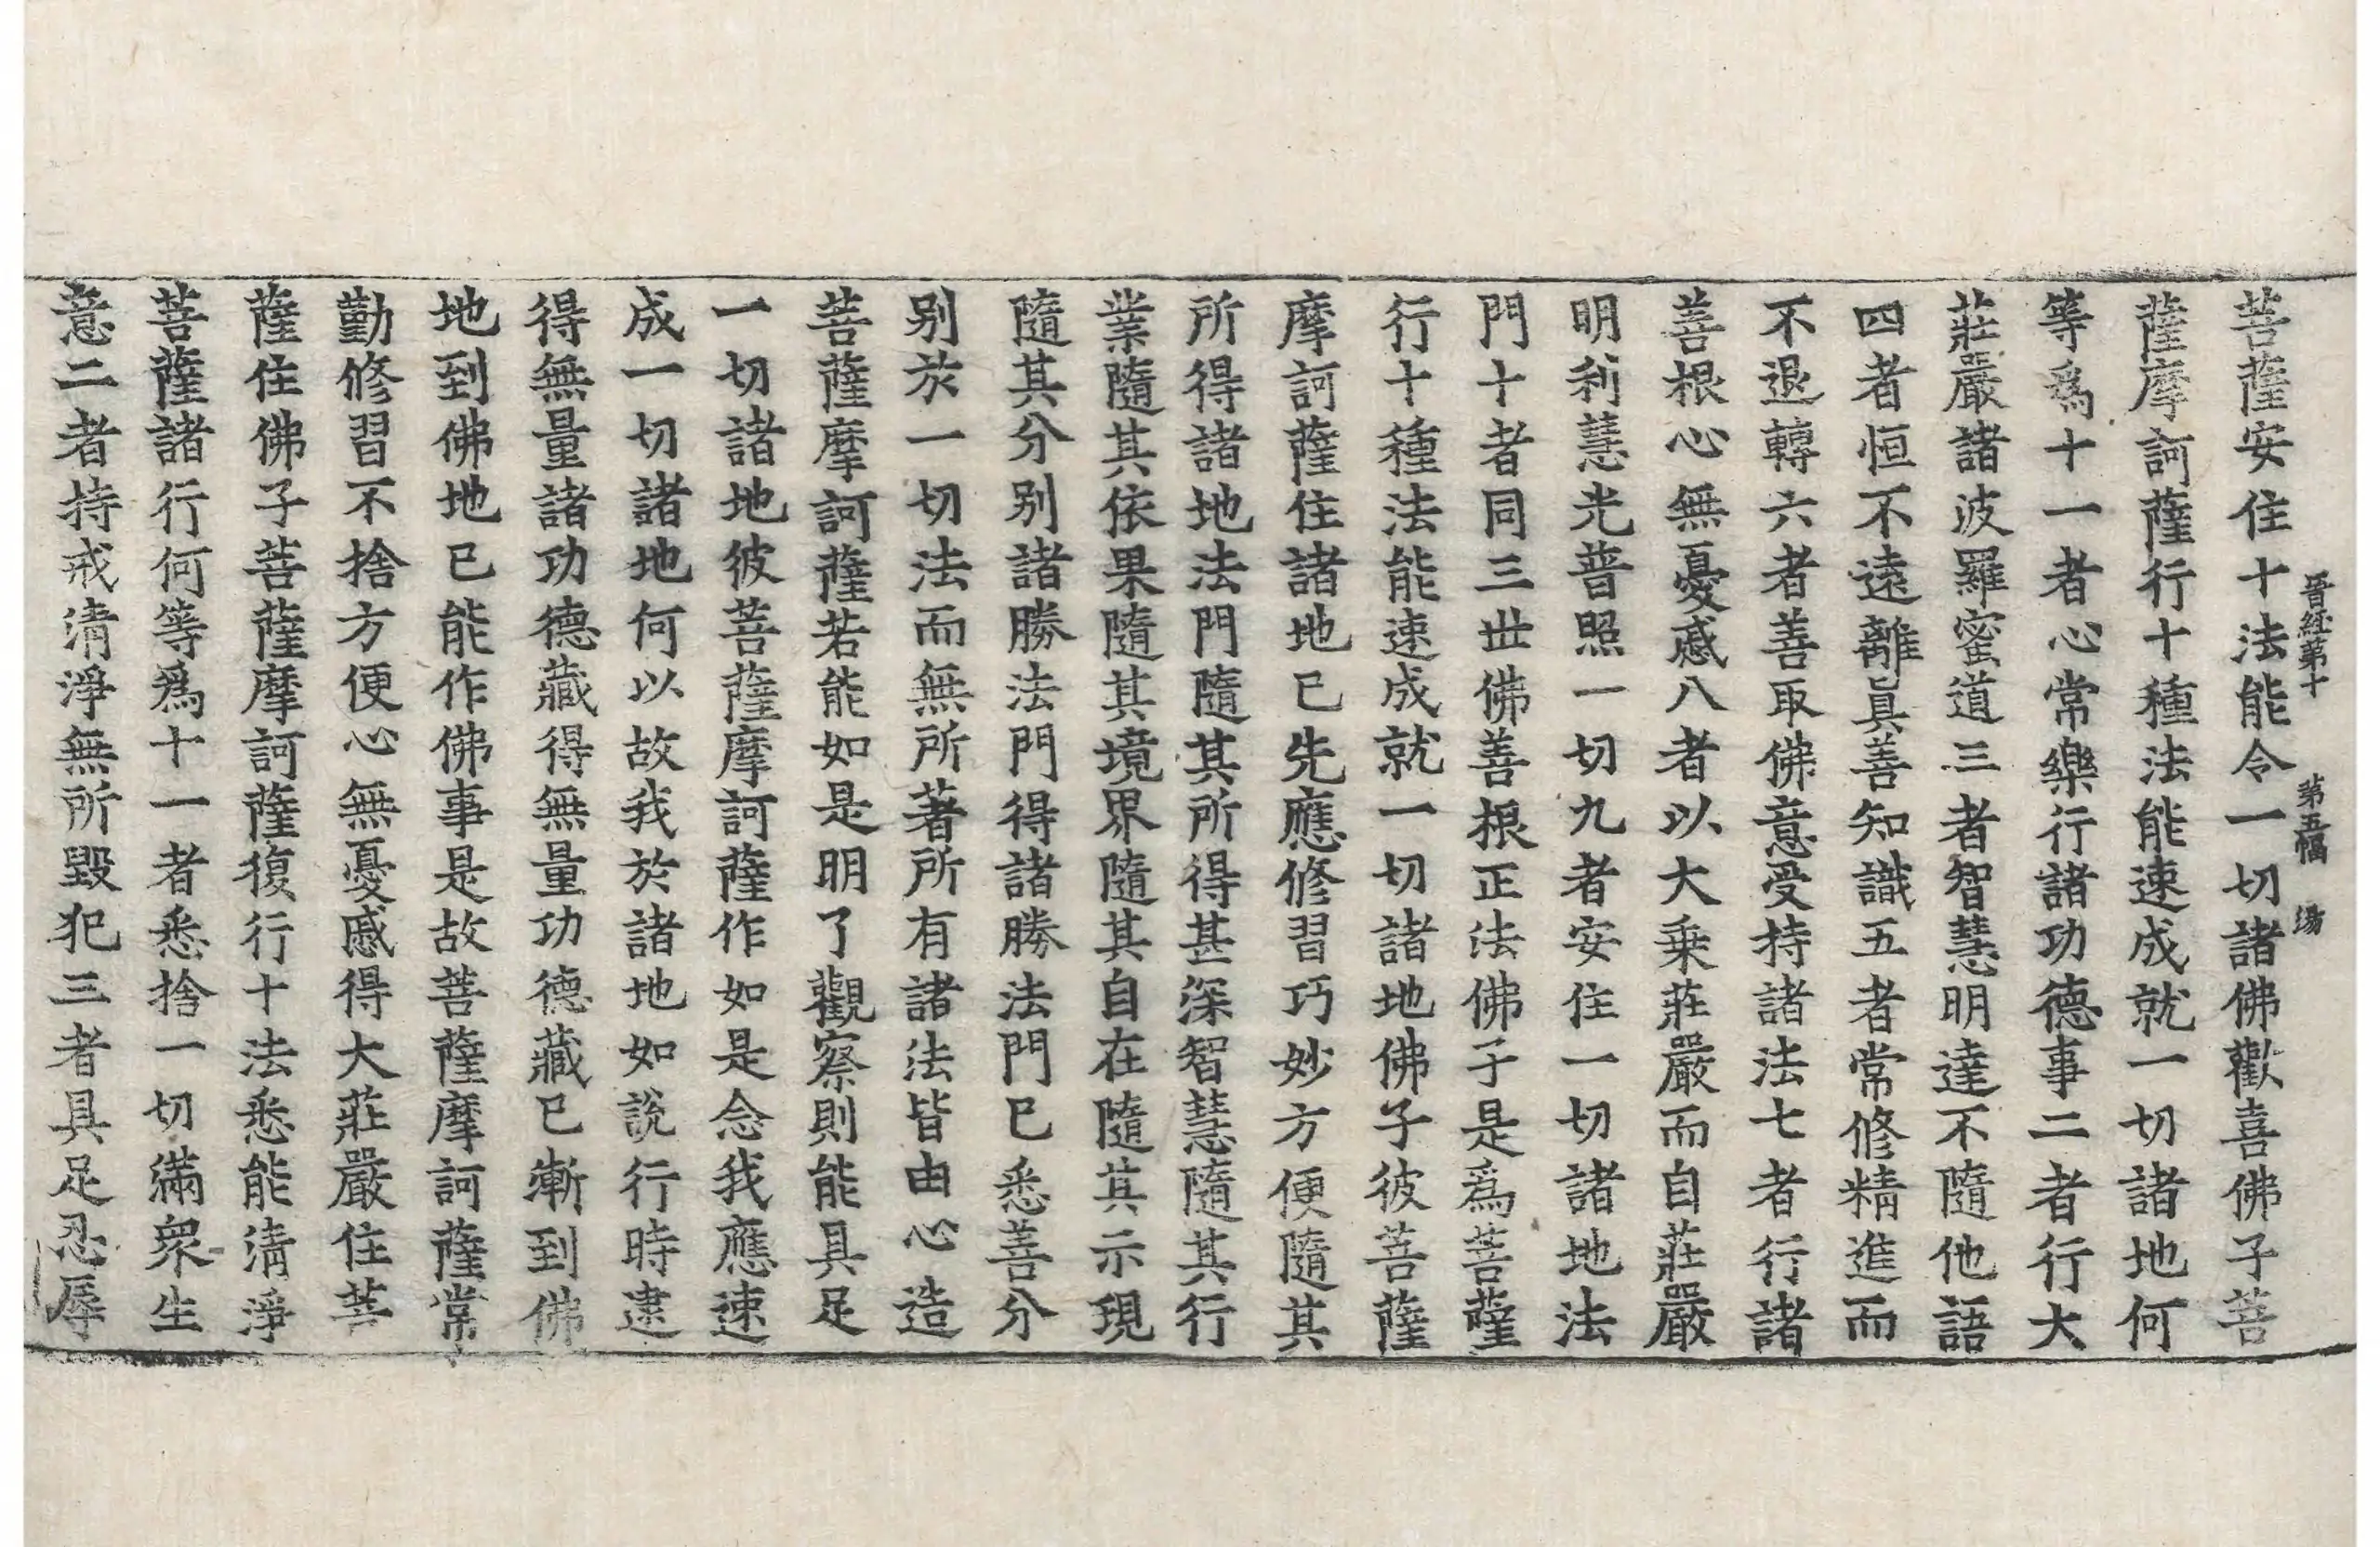 晋経第十 第五幅 湯
菩薩安住十法能令一切諸佛歡喜佛子菩
薩摩訶薩行十種法能速成就一切諸地何
等爲十一者心常樂行諸功德事二者行大
莊嚴諸波羅蜜道三者智慧明達不隨他語
四者恒不遠離眞善知識五者常修精進而
不退轉六者善取佛意受持諸法七者行諸
善根心無憂慼八者以大乗莊嚴而自莊嚴
明利慧光普照一切九者安住一切諸地法
門十者同三世佛善根正法佛子是爲菩薩
行十種法能速成就一切諸地佛子彼菩薩
摩訶薩住諸地已先應修習巧妙方便隨其
所得諸地法門隨其所得甚深智慧隨其行
業隨其依果隨其境界隨其自在隨其示現
隨其分别諸勝法門得諸勝法門已悉善分
别於一切法而無所著所有諸法皆由心造
菩薩摩訶薩若能如是明了觀察則能具足
一切諸地彼菩薩摩訶薩作如是念我應速
成一切諸地何以故我於諸地如說行時逮
得無量諸功德藏得無量功德藏已漸到佛
地到佛地已能作佛事是故菩薩摩訶薩常
勤修習不捨方便心無憂慼得大莊嚴住菩
薩住佛子菩薩摩訶薩復行十法悉能清淨
菩薩諸行何等爲十一者悉捨一切滿衆生
意二者持戒清淨無所毀犯三者具足忍辱